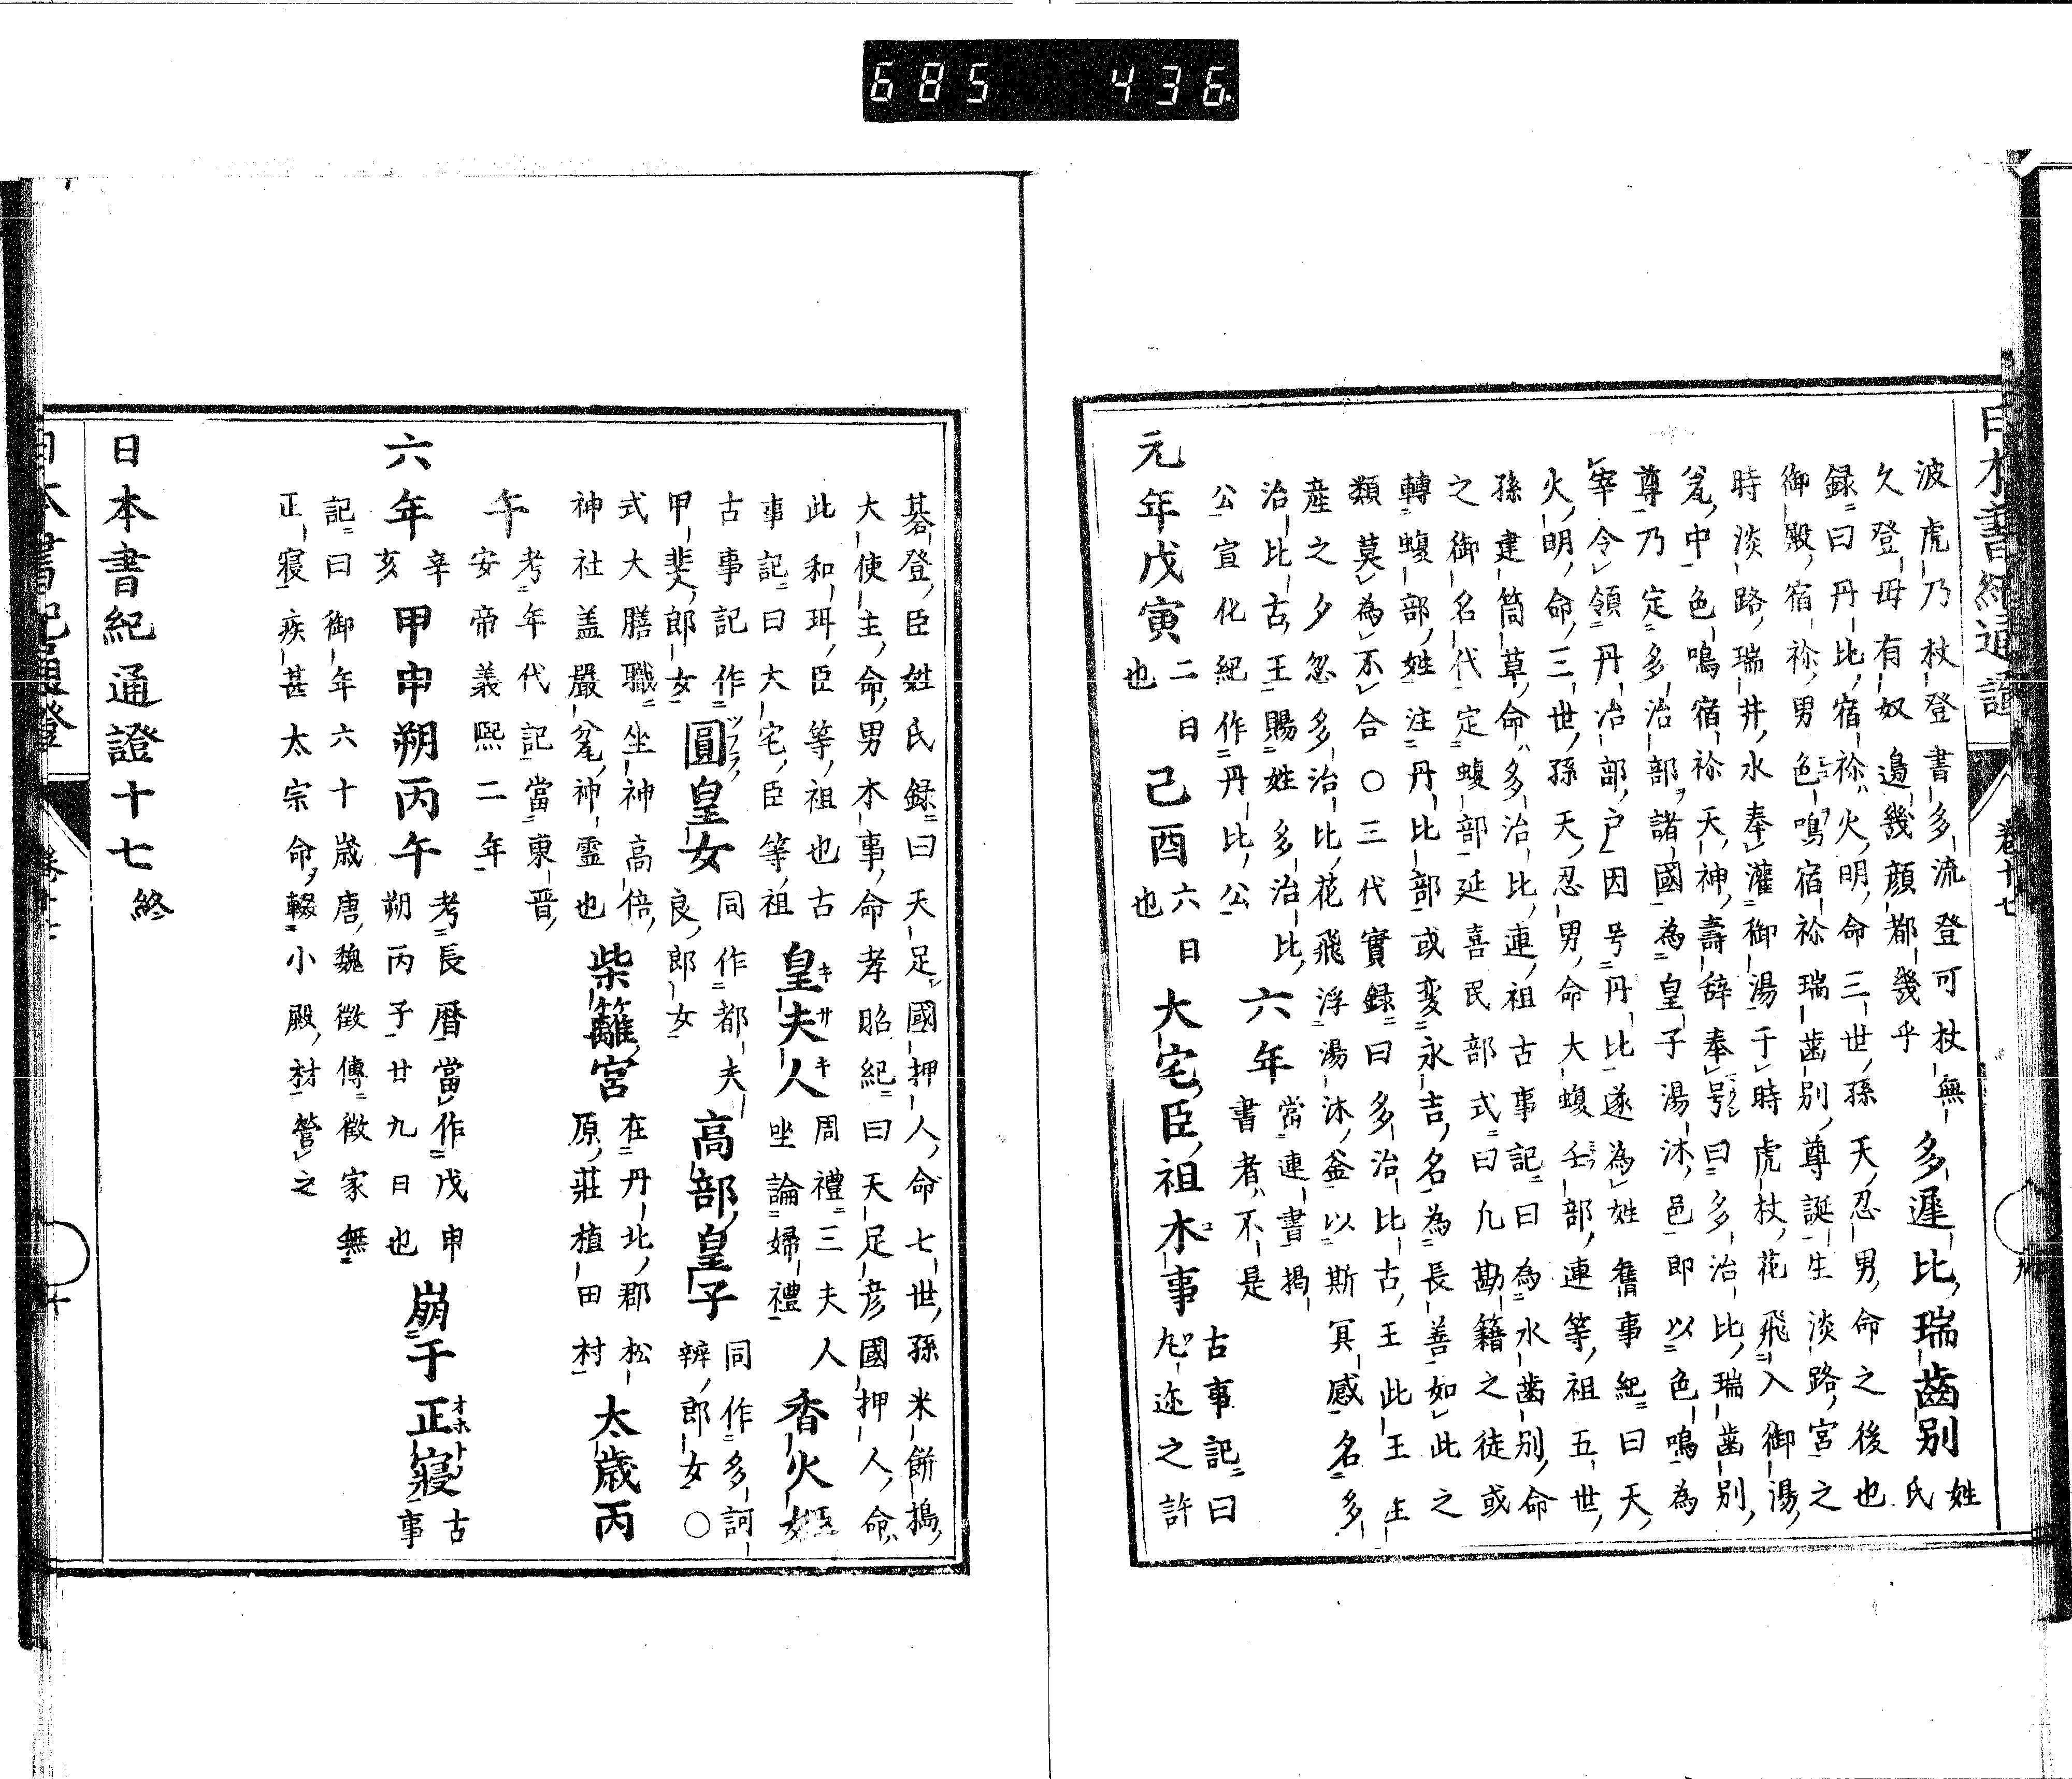 685 436
日本書紀通證
卷十七
波虎乃杖登書多流登可杖無
久登毋有奴邉幾顔都幾乎
多遲比瑞齒别
姓
氏
録曰丹比宿祢火明命三世孫天忍男命之後也
御殿宿祢男色鳴宿祢瑞齒别尊誕生淡路宮之
時淡路瑞井水奉灌御湯于時虎杖花飛入御湯
瓮中色鳴宿祢天神壽辞奉号曰多治比瑞齒别
尊乃定多治部諸國為皇子湯沐邑即以色鳴為
宰令領丹治部戸因号丹比遂為姓舊事紀曰天
火明命三世孫天忍男命大蝮壬部連等祖五世
孫建筒草命多治比連祖古事記曰為水齒别命
之御名代定蝮部延喜民部式曰凡勘籍之徒或
轉蝮部姓注丹比部或変永吉名為長善如此之
類莫為不合〇三代實録曰多治比古王此王生
産之夕忽多治比花飛浮湯沐釜以斯冥感名多
治比古王賜姓多治比
六年
當連書掲
公宣化紀作丹比公
書者不是
元年戊寅
二日
也
己酉
六日
也
大宅臣祖木事
古事記曰
丸迩之許
碁登臣姓氏録曰天足國押人命七世孫米餅搗
大使主命男木事命孝昭紀曰天足彦國押人命
此和珥臣等祖也古
事記曰大宅臣等祖
皇夫人
キサキ
周禮三夫人
坐論婦禮
香火姫
古事記作
甲斐郎女
圓皇女
ツフラ
同作都夫
良郎女
高部皇子
同作多訶
辨郎女〇
式大膳職坐神高倍
神社盖嚴瓮神霊也
柴籬宮
在丹比郡松
原莊植田村
太歳丙
午
考年代記當東晋
安帝義熙二年
六年
辛
亥
甲申朔丙午
考長暦當作戊申
朔丙子廿九日也
崩于正寢
オホトノ
古
事
記曰御年六十歳唐魏徵傳徵家無
正寢疾甚太宗命輟小殿材營之
日本書紀通證十七終
日本書紀通證